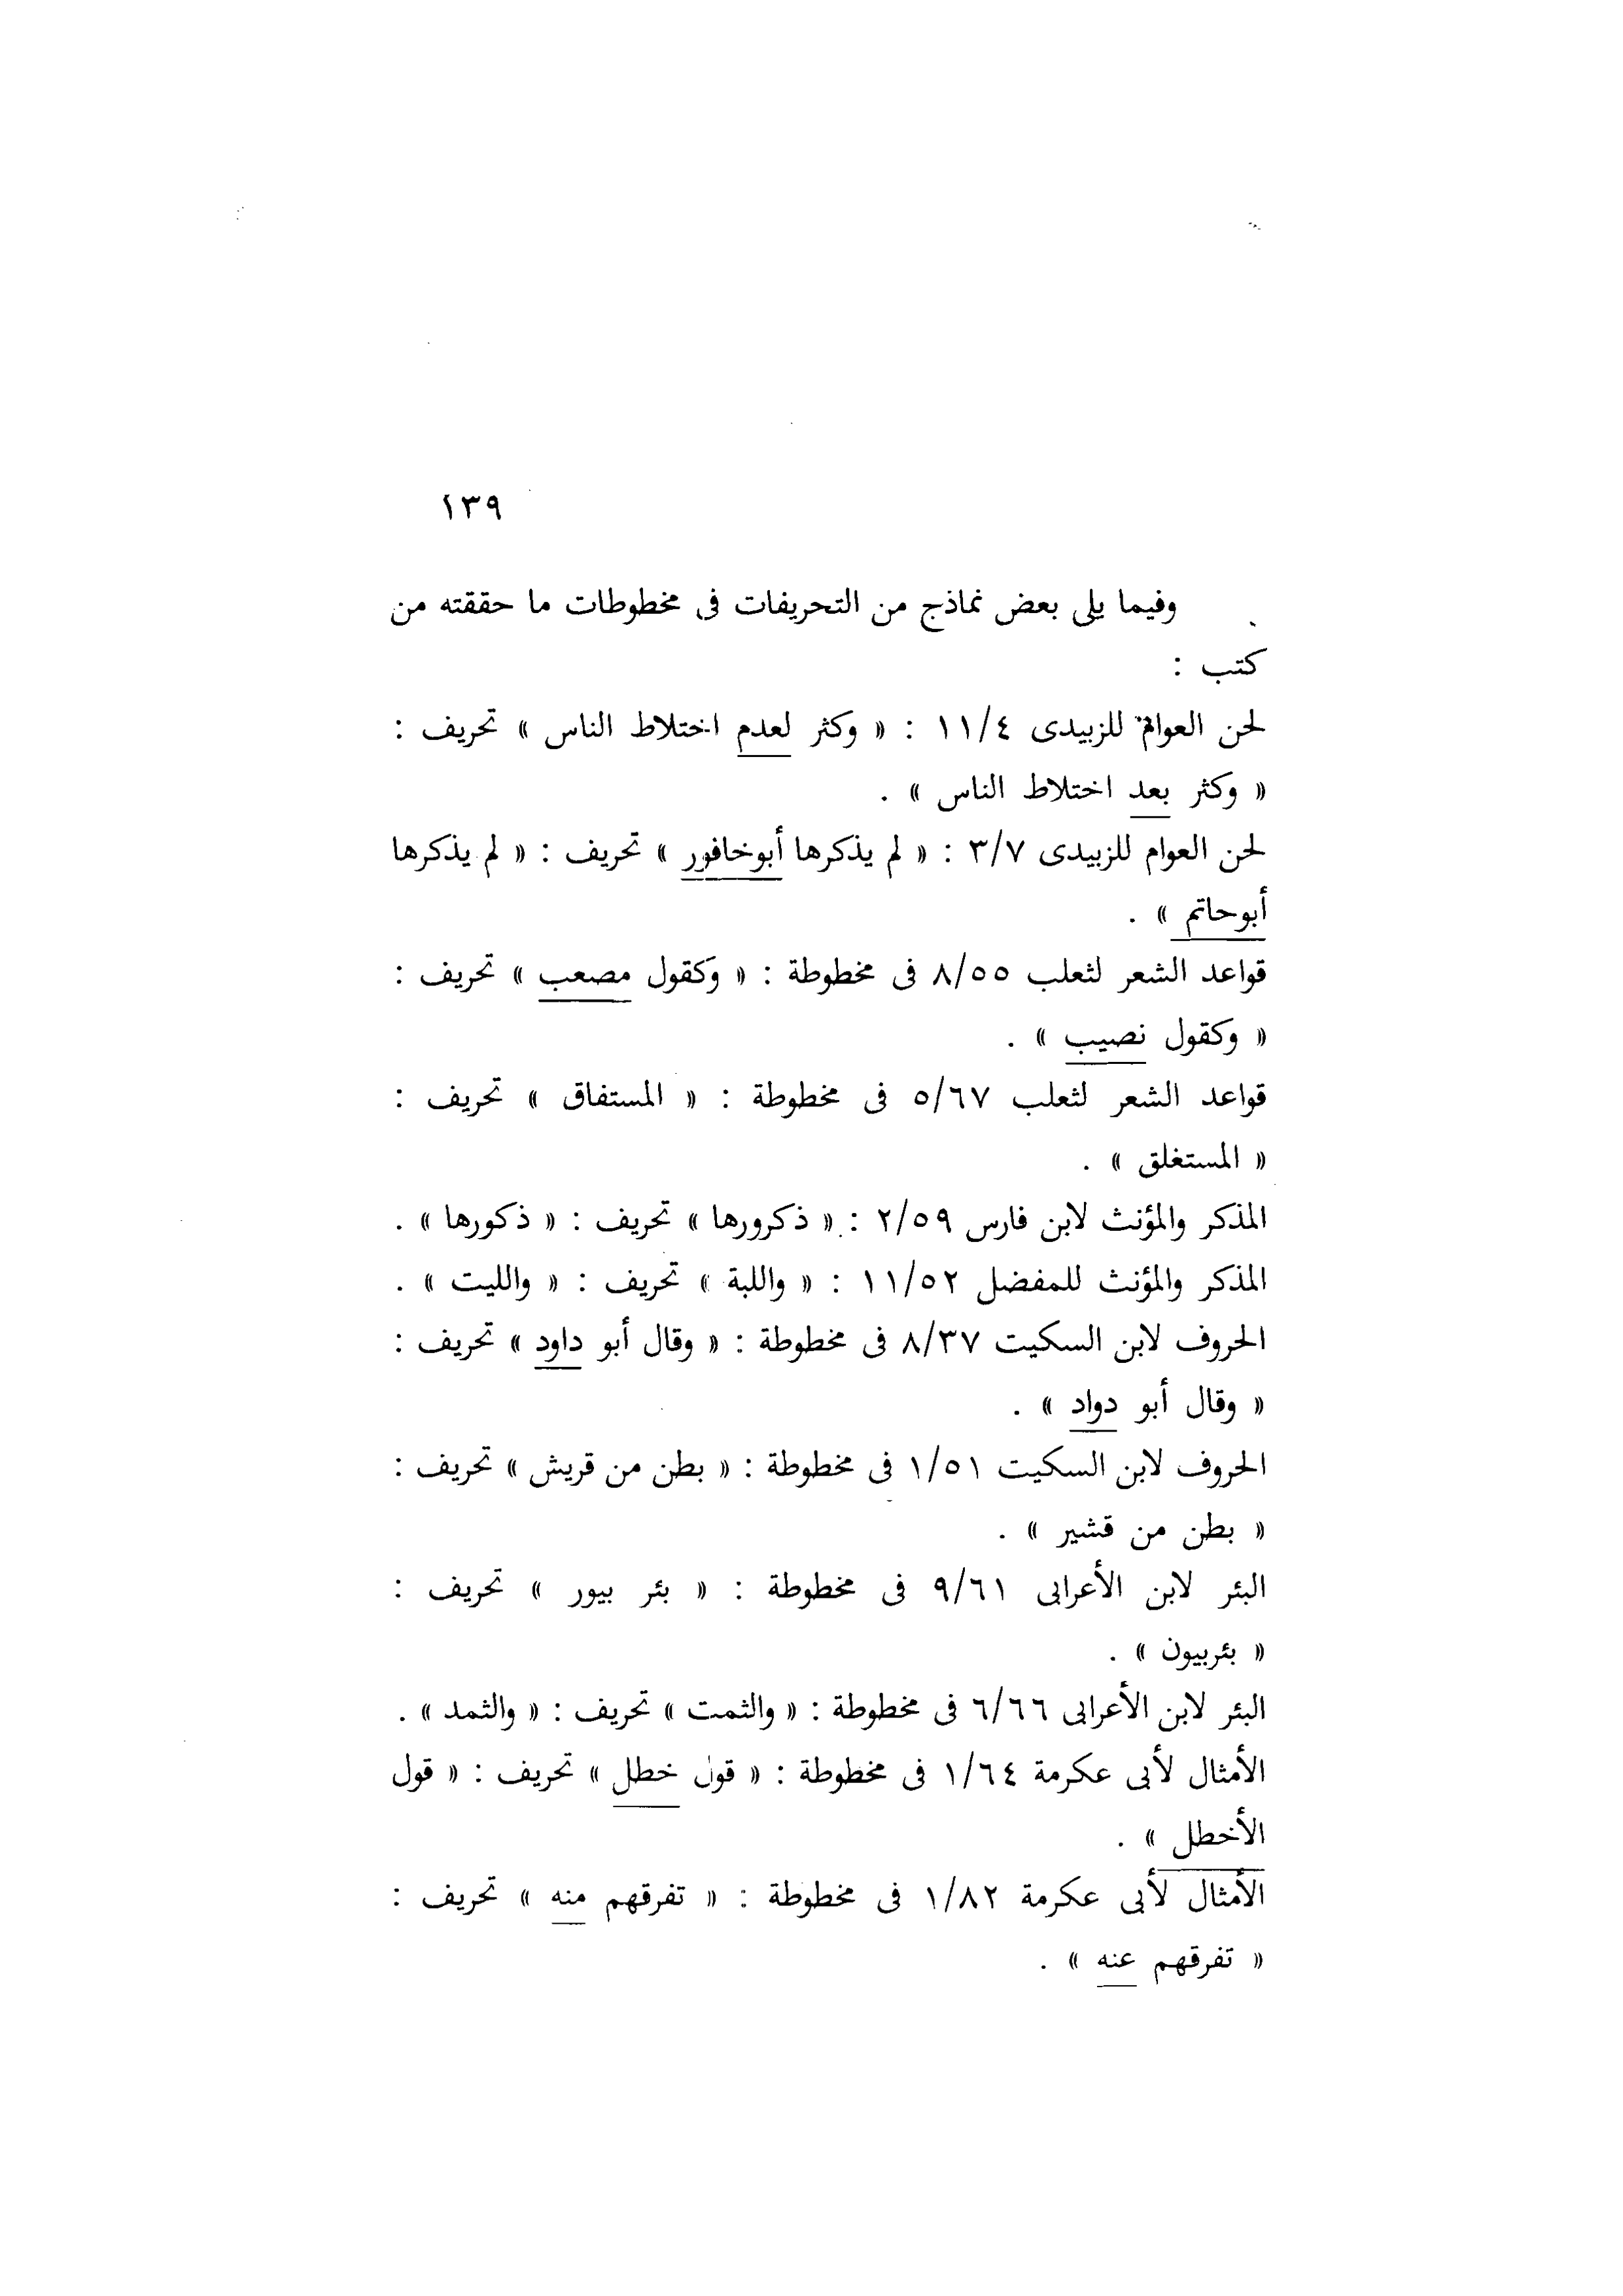 ١٣٩
وفيما يلى بعض نماذج من التحريفات فى مخطوطات ما حققته من
كتب :
لحن العوام للزبيدى ١١/٤ : « وكثر لعدم اختلاط الناس » تحريف :
« وكثر بعد اختلاط الناس » .
لحن العوام للزبيدى ٣/٧ : « لم يذكرها أبوخافور » تحريف : « لم يذكرها
أبوحاتم » .
قواعد الشعر لثعلب ٨/٥٥ فى مخطوطة : « وكقول مصعب » تحريف :
« وكقول نصيب » .
قواعد الشعر لثعلب ٥/٦٧ فى مخطوطة : « المستفاق » تحريف :
« المستغلق » .
المذكر والمؤنث لابن فارس ٢/٥٩ : « ذكرورها » تحريف : « ذكورها » .
المذكر والمؤنث للمفضل ١١/٥٢ : « واللبة » تحريف : « والليت » .
الحروف لابن السكيت ٨/٣٧ فى مخطوطة : « وقال أبو داود » تحريف :
« وقال أبو دواد » .
الحروف لابن السكيت ١/٥١ فى مخطوطة : « بطن من قريش » تحريف :
« بطن من قشير » .
البئر لابن الأعرابى ٩/٦١ فى مخطوطة : « بئر بيور » تحريف :
« بئربيون » .
البئر لابن الأعرابى ٦/٦٦ فى مخطوطة : « والثمت » تحريف : « والثمد » .
الأمثال لأبى عكرمة ١/٦٤ فى مخطوطة : « قول خطل » تحريف : « قول
الأخطل » .
الأمثال لأبى عكرمة ١/٨٢ فى مخطوطة : « تفرقهم منه » تحريف :
« تفرقهم عنه » .